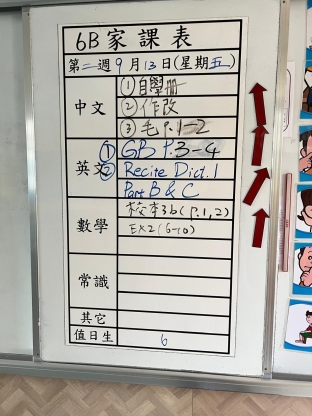 6B 家課表
第二週 9月13日(星期五)
中文
① 自學冊
② 作改
③ 毛 P.1-2
英文
① GB P.3-4
② Recite Dict.1
Part B & C
數學
校本3b (P.1,2)
EX2 (6-10)
常識
其它
值日生 6